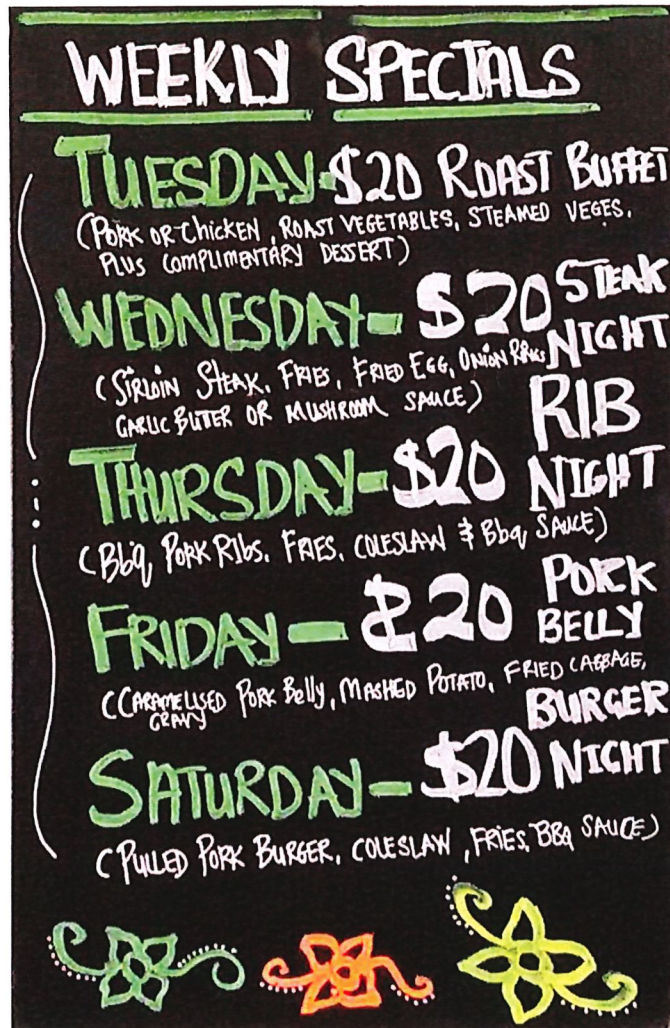 WEEKLY SPECIALS
TUESDAY-$20 ROAST BUFFET
(PORK OR CHICKEN, ROAST VEGETABLES, STEAMED VEGES,
PLUS COMPLIMENTARY DESSERT)
WEDNESDAY- $20 STEAK NIGHT
(SIRLOIN STEAK, FRIES, FRIED EGG, ONION RINGS
GARLIC BUTER OR MUSHROOM SAUCE)
THURSDAY-$20 RIB NIGHT
(Bbq PORK RIbS, FRIES, COLESLAW & Bbq SAUCE)
FRIDAY - $20 PORK BELLY
(CARAMELISED PORK Belly, MASHED POTATO, FRIED CABBAGE,
GRAVY
SATURDAY- $20 BURGER NIGHT
(PULLED PORK BURGER, COLESLAW, FRIES, BBQ SAUCE)